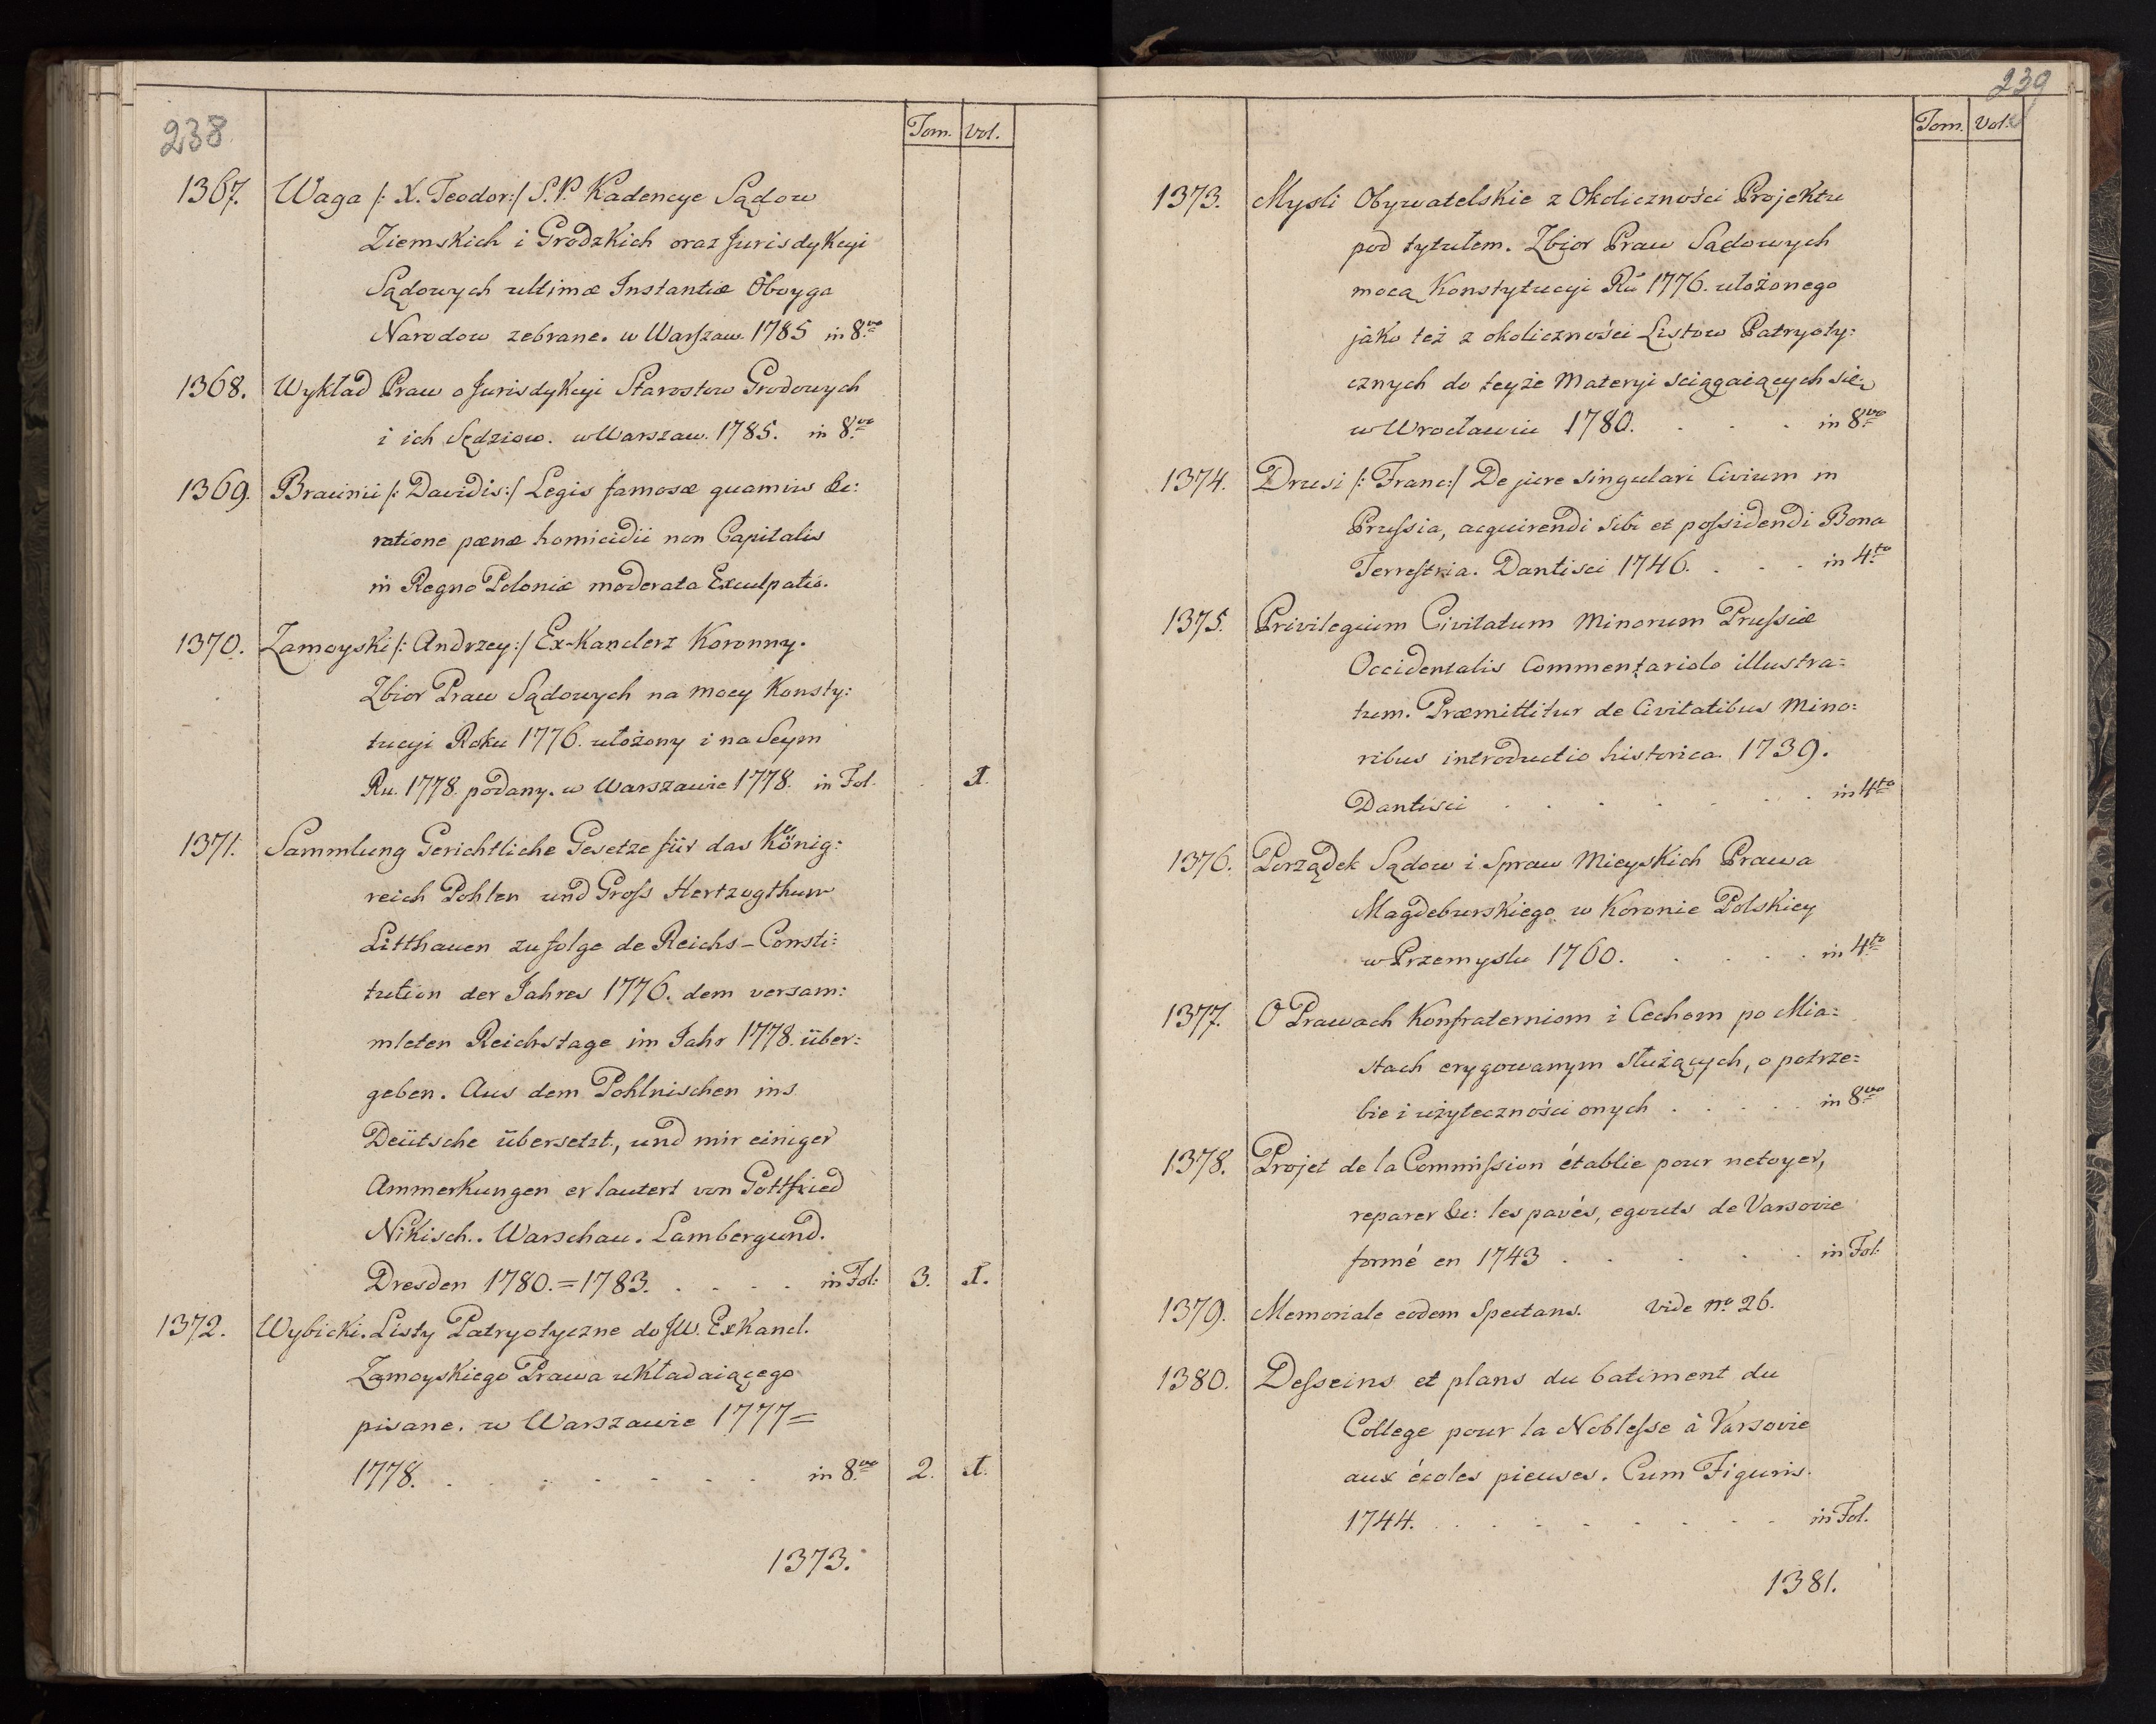 238
Tom. Vol.
1367. Waga /: X. Teodor:/ S. P. Kadencye Sądow
Ziemskich i Grodzkich oraz Jurisdykcyi
Sądowych ultimæ Instantiæ Oboyga
Narodow zebrane. w Warszaw. 1785 in 8.vo
1368. Wykład Praw o Jurisdykcyi Starostow Grodowych
i ich Sędziow. w Warszaw. 1785. in 8.vo
1369. Braunii /: Davidis:/ Legis famosæ quamvis &c:
ratione pænæ homicidii non Capitalis
in Regno Poloniæ moderata Exculpatio.
1370. Zamoyski /: Andrzey:/ Ex-Kanclerz Koronny.
Zbior Praw Sądowych na mocy Konsty:
tucyi Roku 1776. ułożony i na Seym
Ru. 1778. podany. w Warszawie 1778. in Fol. . 1.
1371. Sammlung Gerichtliche Gesetze für das König:
reich Pohlen und Gross Hertzogthum
Litthauen zufolge de Reichs-Consti:
tution der Jahres 1776. dem versam:
mleten Reichstage im Jahr 1778. über:
geben. Aus dem Pohlnischen ins
Deütsche übersetzt, und mir einiger
Ammerkungen erlautert von Gottfried
Nikisch.. Warschau. Lambergund.
Dresden 1780.=1783. . . . . in Fol: 3. 1.
1372. Wybicki. Listy Patryotyczne do JW. ExKancl.
Zamoyskiego Prawa układaiącego
pisane. w Warszawie 1777=
1778. . . . . . . . in 8.vo 2. 1.
1373.
239
Tom. Vol.
1373. Mysli Obywatelskie z Okoliczności Projektu
pod tytułem. Zbior Praw Sądowych
mocą Konstytucyi Ru 1776. ułożonego
jáko też z okoliczności Listow Patryoty:
cznych do teyże Materyi sciągaiących się
w Wrocławiu 1780. . . . in 8vo
1374. Drusi /: Franc:/ De jure singulari Civium in
Prussia, acquirendi sibi et possidendi Bona
Terrestria. Dantisci 1746. . . . in 4.to
1375. Privilegium Civitatum Minorum Prussiæ
Occidentalis Commentariolo illustra=
tum. Præmittitur de Civitatibus Mino=
ribus introductio historica. 1739.
Dantisci . . . . . . . in 4to
1376. Porządek Sądow i Spraw Mieyskich Prawa
Magdeburskiego w Koronie Polskiey
w Przemyslu 1760. . . . . in 4to
1377. O Prawach Konfraterniom i Cechom po Mia=
stach erygowanym służących, o potrze=
bie i użyteczności onych . . . . in 8vo
1378. Projet de la Commission établie pour netoyer,
reparer &c: les pavés, egouts de Varsovie
formé en 1743 . . . . . in Fol:
1379. Memoriale eodem Spectans. Vide no. 26.
1380. Desseins et plans du batiment du
College pour la Noblesse à Varsovie
aux écoles pieuses. Cum Figuris.
1744. . . . . . . . . in Fol.
1381.